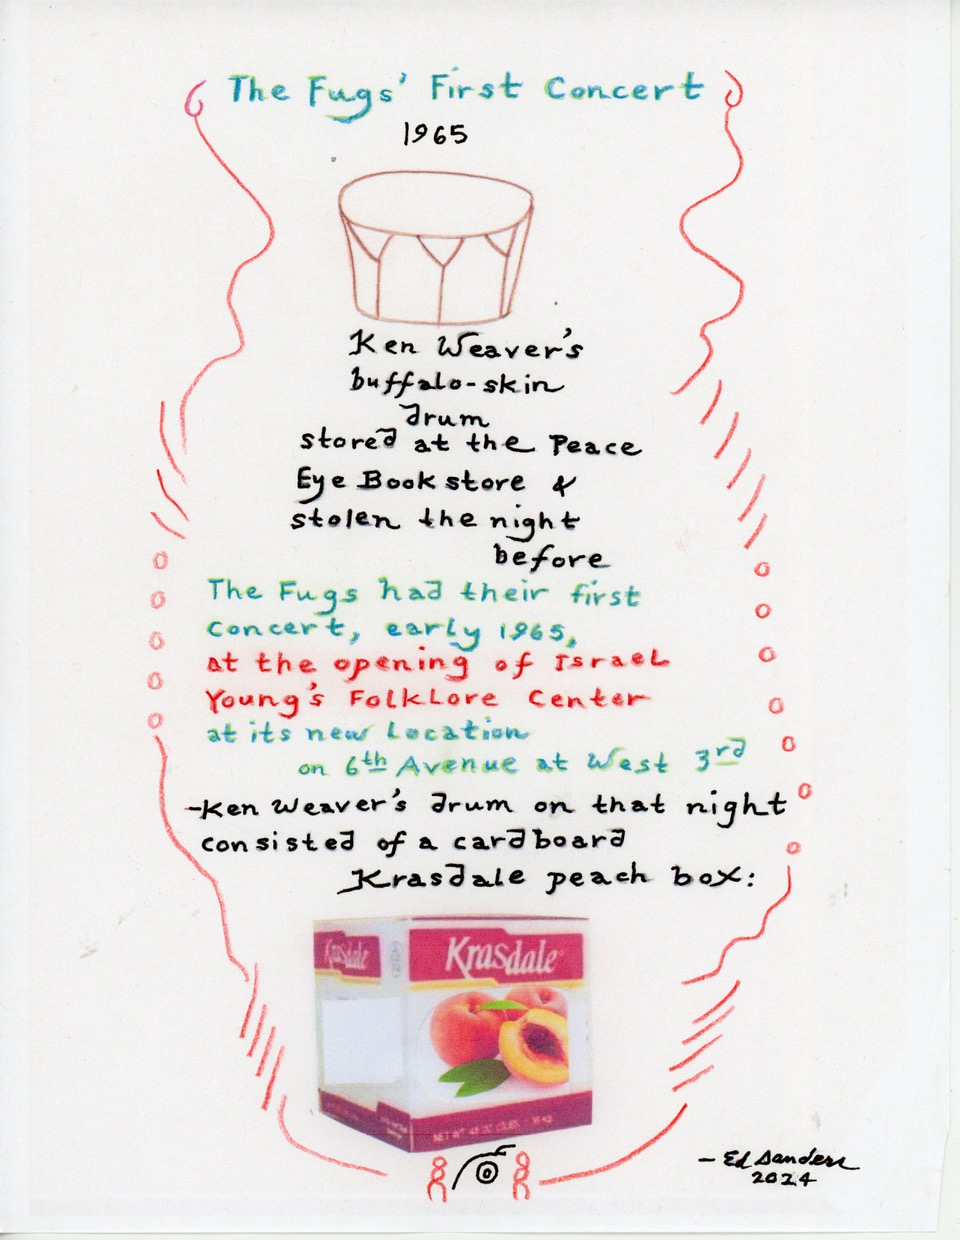 The Fugs' First Concert
1965
Ken Weaver's
buffalo-skin
drum
stored at the Peace
Eye Bookstore &
stolen the night
before
The Fugs had their first
concert, early 1965,
at the opening of Israel
Young's Folklore Center
at its new Location
on 6th Avenue at West 3rd
-Ken Weaver's drum on that night
consisted of a cardboard
Krasdale peach box:
Krasdale
Krasdale
- Ed Sanders
2024